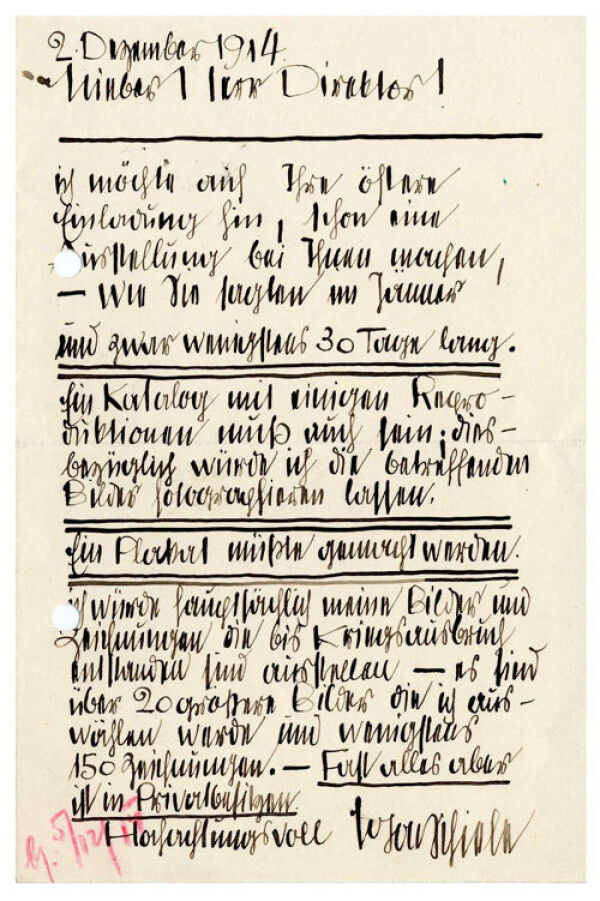 2. Dezember 1914.
Lieber Herr Direktor!
ich möchte auf Ihre öftere
Einladung hin, schon eine
Ausstellung bei Ihnen machen,
– wie Sie sagten im Jänner
und zwar wenigstens 30 Tage lang.
Ein Katalog mit einigen Repro-
duktionen muß auch sein; dies-
bezüglich würde ich die betreffenden
Bilder fotographieren lassen.
Ein Plakat müßte gemacht werden.
ich würde hauptsächlich meine Bilder und
Zeichnungen die bis Kriegsausbruch
entstanden sind ausstellen – es sind
über 20 größere Bilder die ich aus-
wählen werde und wenigstens
150 Zeichnungen. – Fast alles aber
ist in Privatbesitzen.
Hochachtungsvoll Egon Schiele
5/12